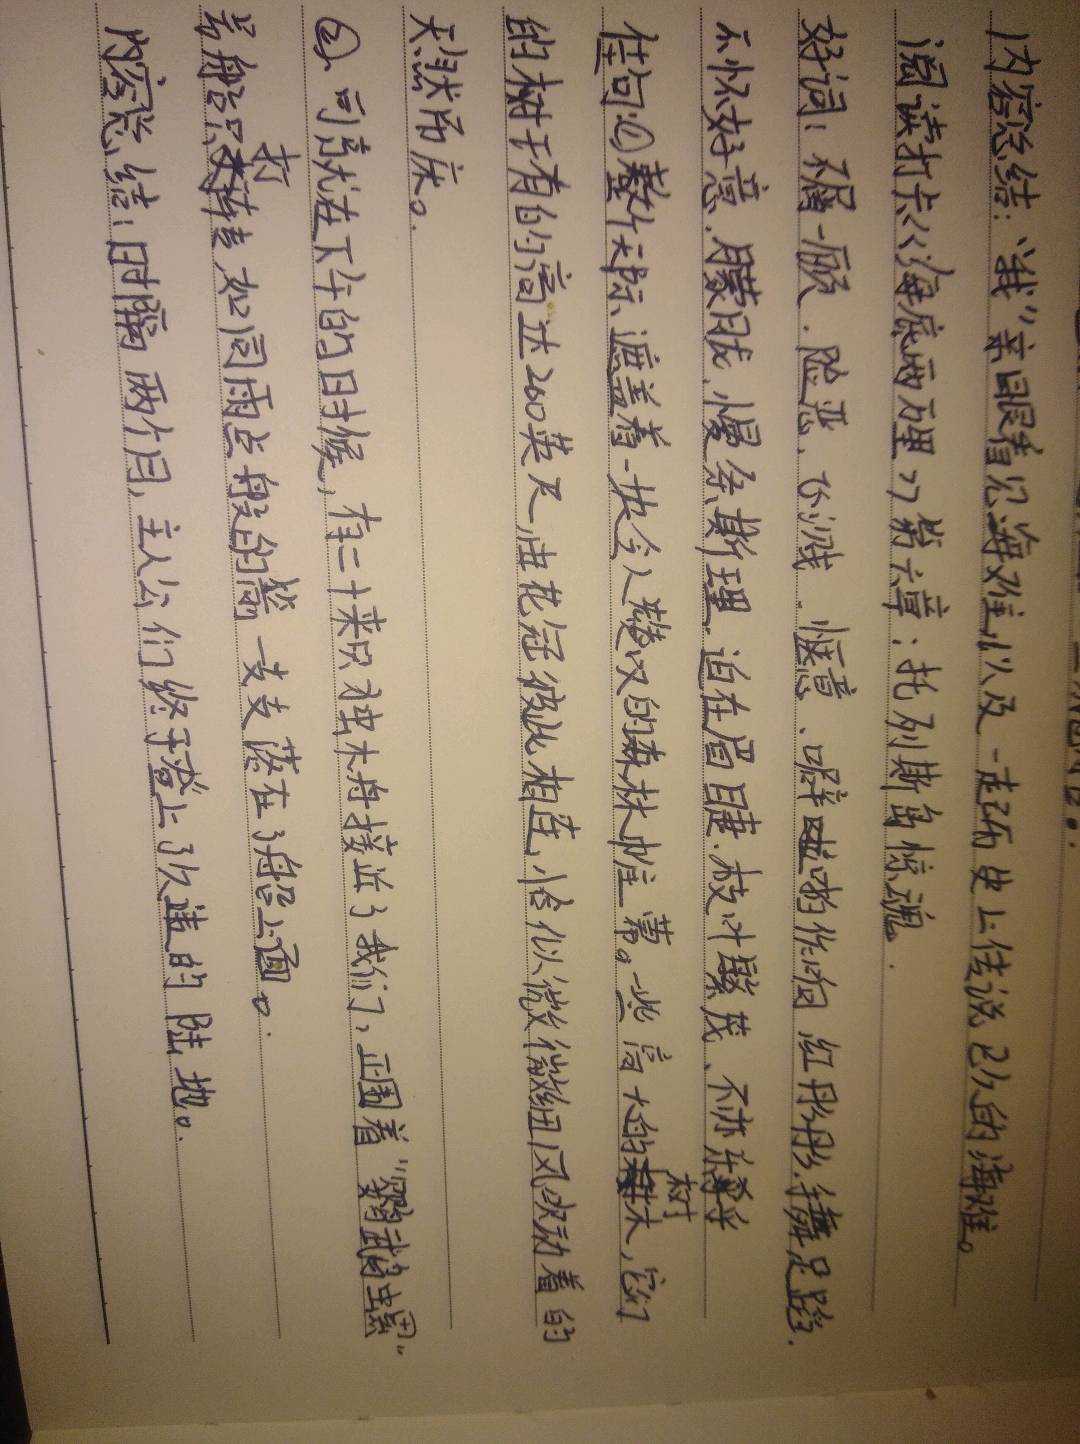 内容总结：“我”亲眼看见海难，以及一走砺史上传说已久的海难。
阅读打卡《海底两万里》第六章：托列斯岛惊魂
好词：不屑一顾、险恶、飞溅、惬意、噼啦啪作响、红彤彤、手舞足蹈、
不怀好意、朦胧、慢条斯理、迫在眉睫、枝叶繁茂、不亦乐乎
佳句：①整个天际遮盖着一块令人赞叹的森林帷幕。一些高大的树木，它们
的树干有的高达200英尺，由花冠彼此相连，恰似微微细风吹动着的
天然吊床。
②、可就在下午的时候，有二十来只独木舟接近了我们，正围着“鹦鹉螺”
号船只打转 如同雨点般的箭一支支落在了船上面。
内容总结：时隔两个月，主人公们终于登上了久违的陆地。